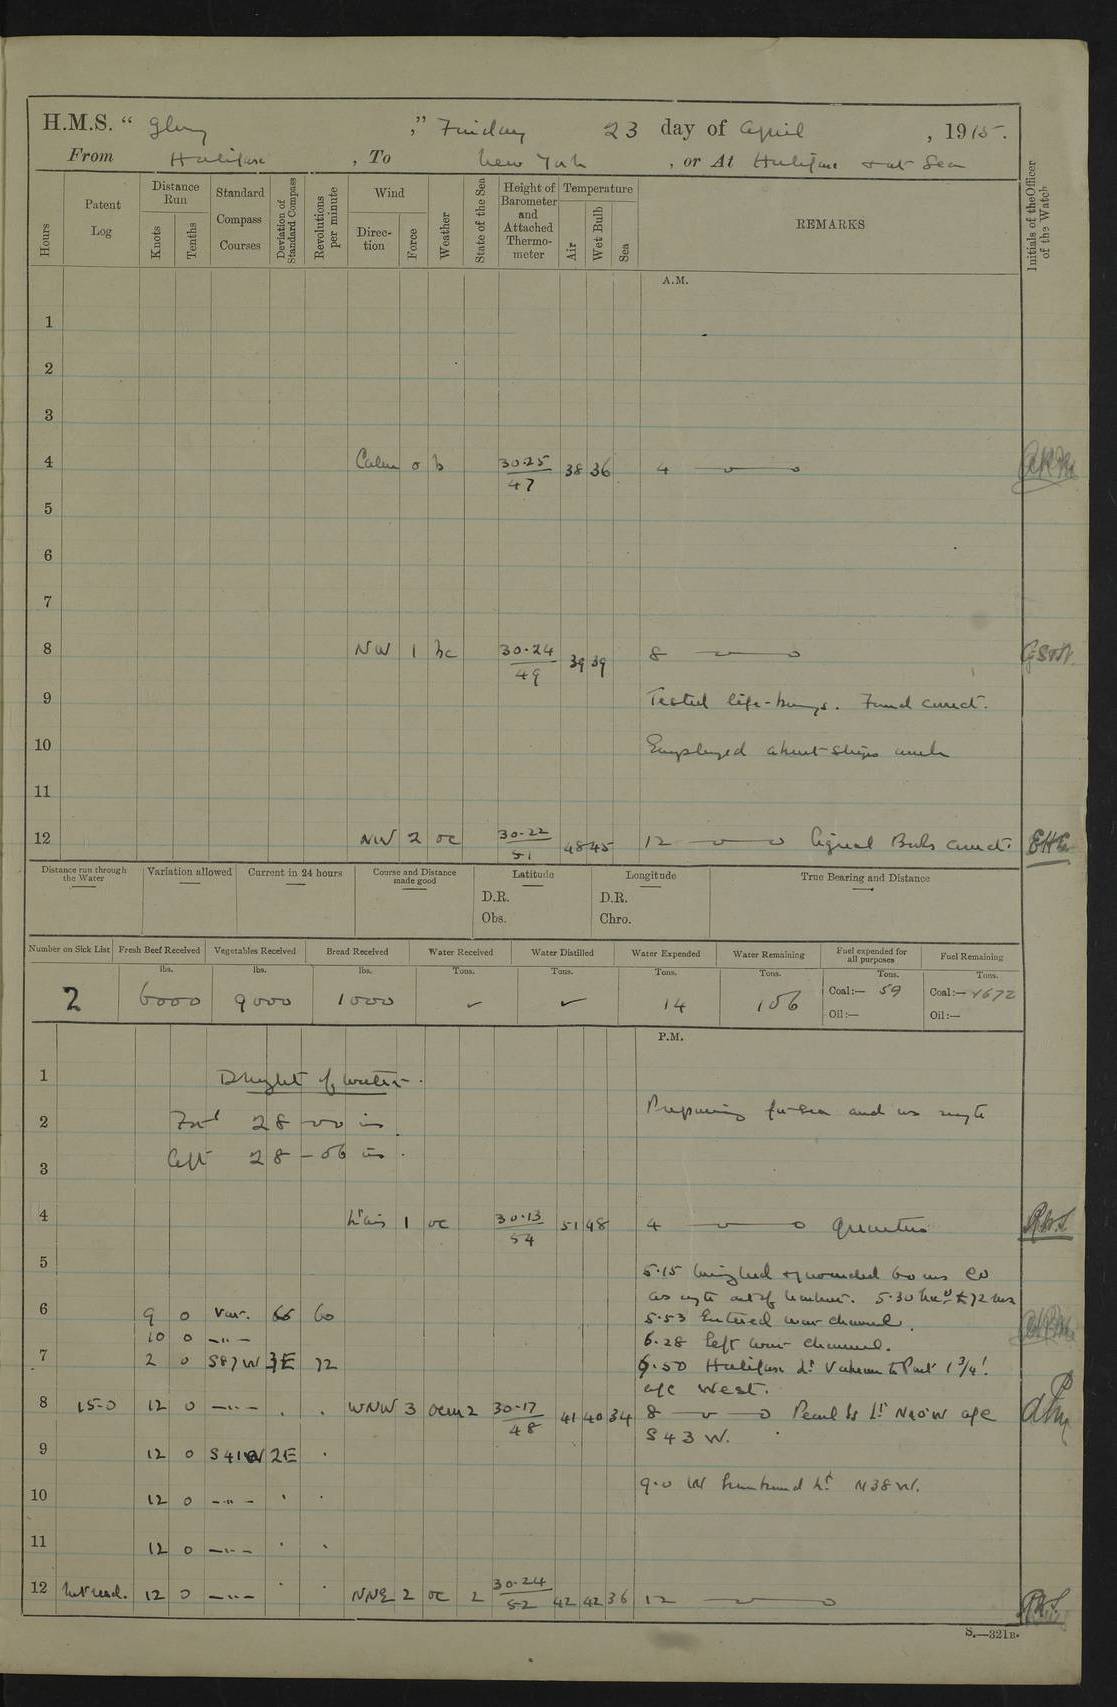 H.M.S. " Glory ," Friday 23 day of April , 1915.
From Halifax , To New York , or At Halifax & at Sea
Hours
Patent Log
Distance Run
Knots
Tenths
Standard Compass Courses
Deviation of Standard Compass
Revolutions per minute
Wind
Direction
Force
Weather
State of the Sea
Height of Barometer and Attached Thermometer
Temperature
Air
Wet Bulb
Sea
REMARKS
Initials of the Officer of the Watch
A.M.
1
2
3
4 Calm 0 b 30.25/47 38 36 4
5
6
7
8 NW 1 bc 30.24/49 39 39 8
9 Tested life-buoys. Found correct.
10 Employed about ships work
11
12 NW 2 oc 30.22/51 48 45 12 Signal Books correct. EHE
Distance run through the Water
Variation allowed
Current in 24 hours
Course and Distance made good
Latitude
D.R.
Obs.
Longitude
D.R.
Chro.
True Bearing and Distance
Number on Sick List
Fresh Beef Received
Vegetables Received
Bread Received
Water Received
Water Distilled
Water Expended
Water Remaining
Fuel expended for all purposes
Fuel Remaining
lbs. lbs. lbs. Tons. Tons. Tons. Tons. Tons. Tons.
2 6000 9000 1000 ✓ ✓ 14 156 Coal:— 59 Coal:— 1672
Oil:— Oil:—
P.M.
1 Draught of water.
2 For'd 28 - 00 ins Preparing for sea and as req'te
Aft 28 - 06 ins.
3
4 Lt airs 1 oc 30.13/54 51 48 4 Quarters RWS
5 5.15 Weighed & proceeded 60 revs Co
as req'te out of harbour. 5.30 Inc'd to 72 revs
6 9 0 Var. 66 60 5.53 Entered war channel.
10 0 —"— 6.28 Left war channel.
7 2 0 S87W 3E 72 6.50 Halifax Lt Vessel to Port 1 3/4'
a/c West.
8 15.0 12 0 —"— . . WNW 3 ocm 2 30.17/48 41 40 34 8 Pearl Is Lt N10W a/c
S43W.
9 12 0 S41W 2E .
9.0 W Ironbound Lt N38W.
10 12 0 —"— . .
11 12 0 —"— . .
12 Not read. 12 0 —"— . . NNE 2 oc 2 30.24/52 42 42 36 12 RWS
S.—321B.